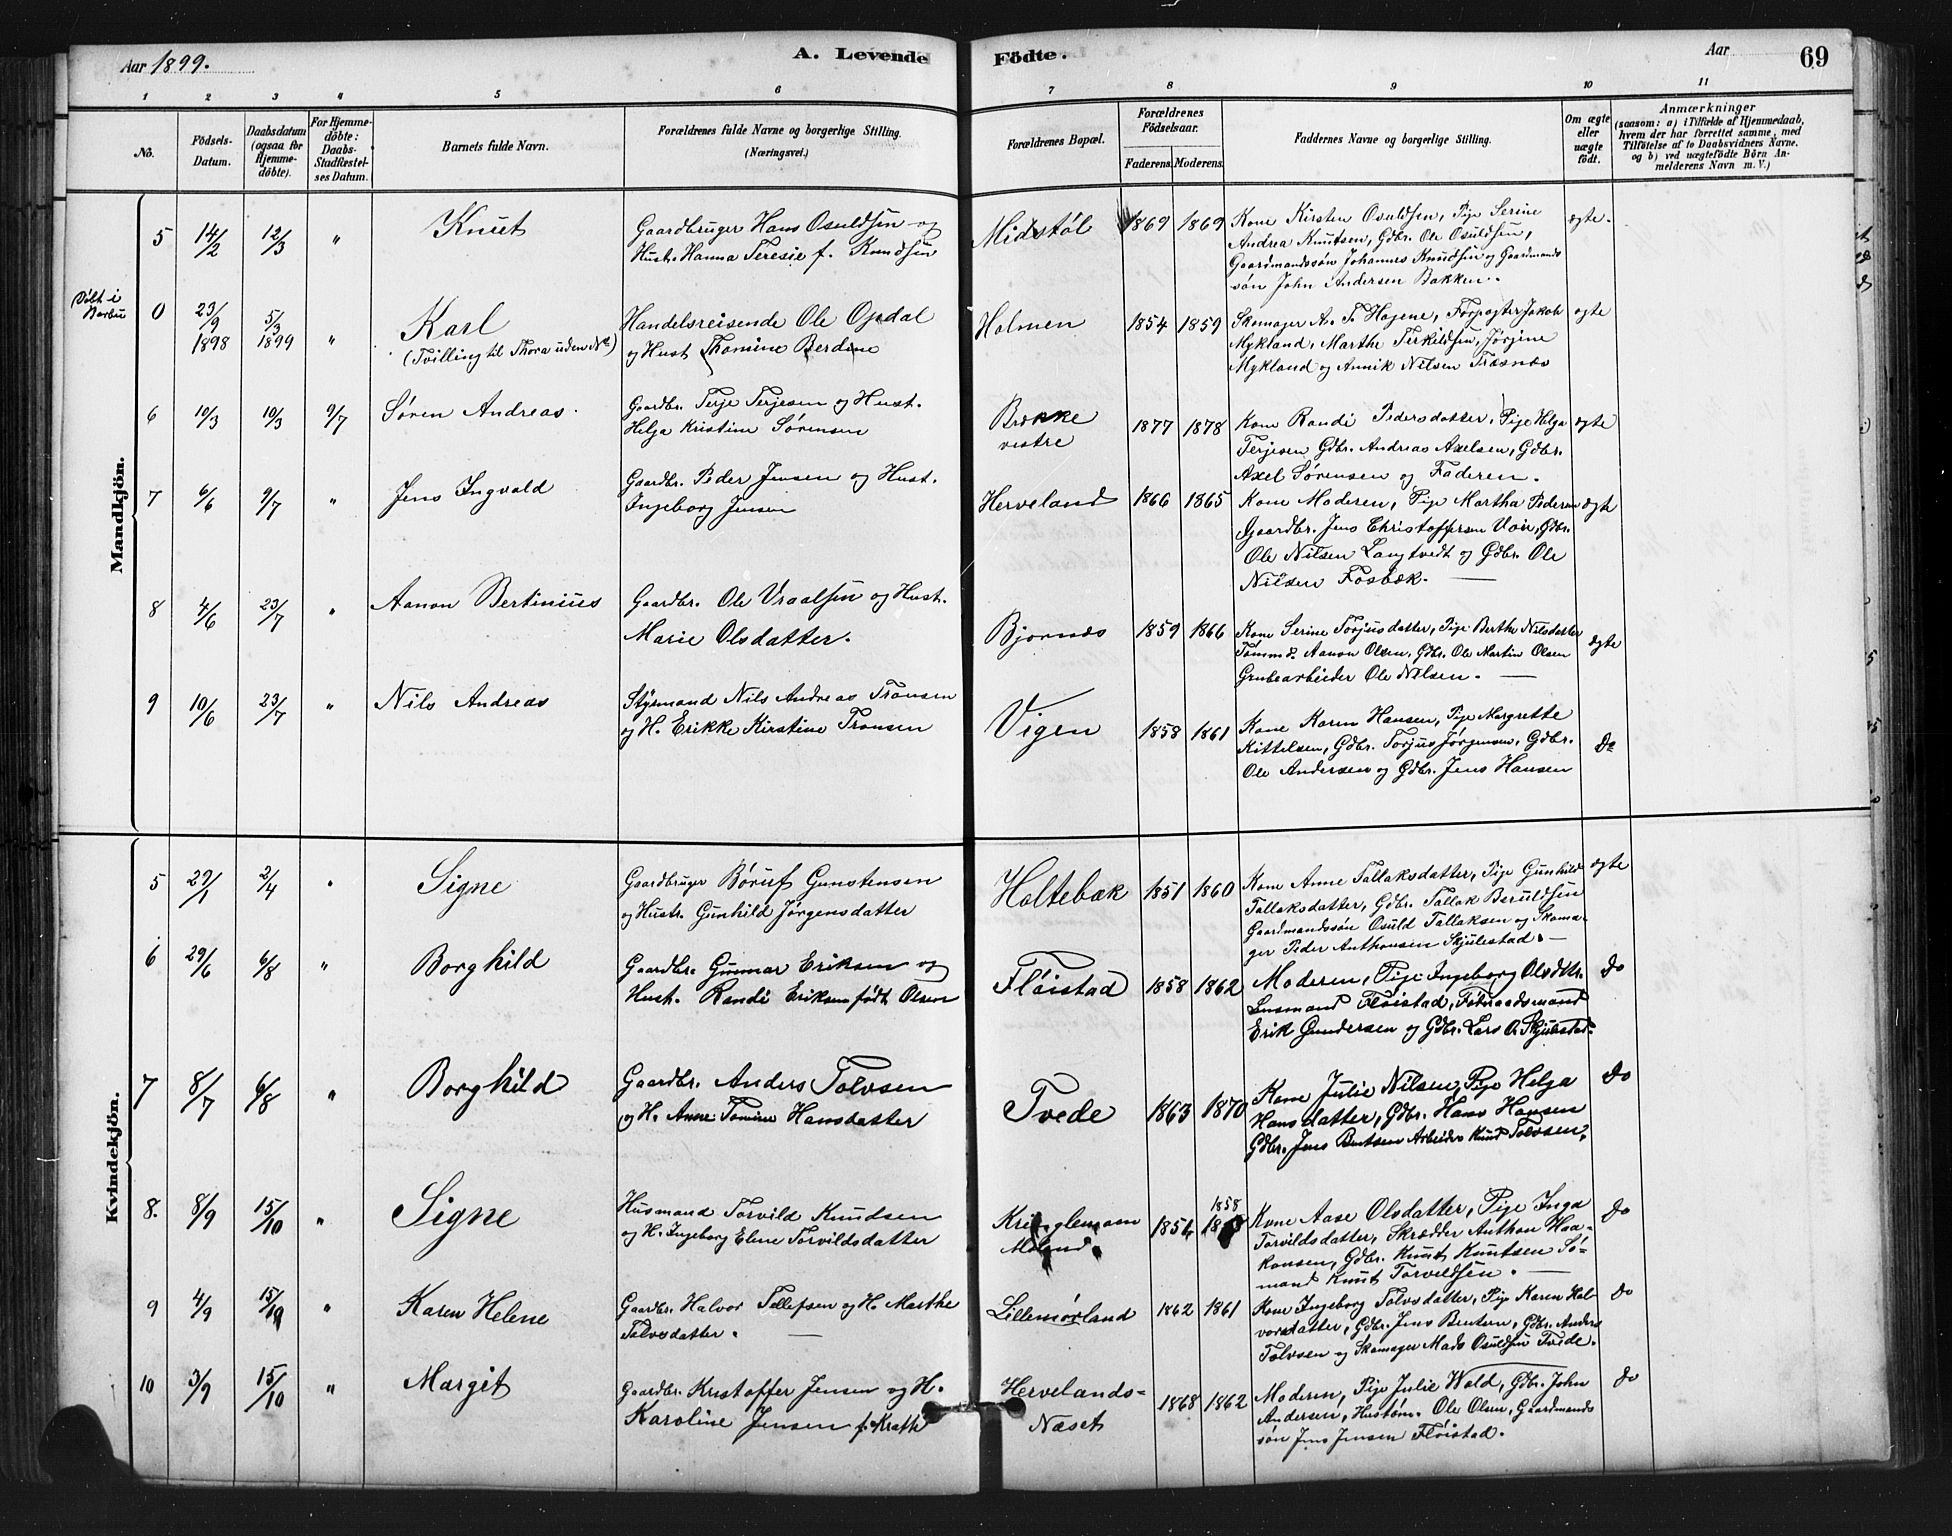 Aar 1899. A. Levende Födte. Aar 69
1 2 3 4 5 6 7 8 9 10 11
No.
Födsels-
Datum.
Daabsdatum
(ogsaa for
Hjemme-
döbte).
For Hjemme-
döbte:
Daabs-
Stadfæstel-
ses Datum.
Barnets fulde Navn.
Forældrenes fulde Navne og borgerlige Stilling.
(Næringsvei.)
Forældrenes Bopæl.
Forældrenes
Födselsaar.
Faderens. Moderens.
Faddernes Navne og borgerlige Stilling.
Om ægte
eller
uægte
født.
Anmærkninger
(saasom: a) i Tilfælde af Hjemmedaab,
hvem der har forrettet samme, med
Tilföielse af to Daabsvidners Navne.
og b) ved uægtefödte Börn An-
melderens Navn m. V.)
Mandkjön.
5 14/2 12/3 " Knut
Gaardbruger Hans Osuldsen og
Hust. Hanna Teresie f. Knudsen
Midstøl 1869 1869
Kone Kirsten Osuldsen, Pige Serine
Andrea Knutsen, Gdbr. Ole Osuldsen,
Gaardmandssøn Johannes Knudsen og Gaardmands
søn John Andersen Bakken.
ægte.
Døbt i
Barbu
0 23/9 1898 5/3 1899 " Karl
(Tvilling til Thora uden No)
Handelsreisende Ole Opdal
og Hust Thomine Berdine
Holmen 1854 1859
Skomager A. T. Hagene, Forpagter Jakob
Mykland, Marthe Terkildsen, Jørgine
Mykland og Annik Nilsen Træsnæs
ægte
6 10/3 10/3 9/7 Søren Andreas.
Gaardbr. Terje Terjesen og Hust.
Helja Kristine Sørensen
Brække
vestre
1877 1878
Kone Randi Pedersdatter, Pige Helga
Terjesen Gdbr. Andreas Axelsen, Gdbr.
Axel Sørensen og Faderen.
ægte
7 6/6 9/7 " Jens Ingvald
Gaardbr. Peder Jensen og Hust.
Ingeborg Jensen
Herveland 1866 1865
Kone Moderen, Pige Martha Pedersen
Gaardbr. Jens Christoffersen Voie, Gdbr.
Ole Nilsen Langtvedt og Gdbr. Ole
Nilsen Fosbæk.
ægte
8 4/6 23/7 " Aanon Bertinius
Gaardbr. Ole Vraalsen og Hust.
Marie Olsdatter.
Bjornæs 1859 1866
Kone Serine Torjusdatter, Pige Berthe Nilsdatter
Tømmd. Aanon Olsen, Gdbr. Ole Martin Olsen
Grubearbeider Ole Nilsen.
ægte
9 10/6 23/7 " Nils Andreas
Styrmand Nils Andreas Tronsen
og H. Erikke Kirstine Tronsen
Vigen 1858 1861
Kone Karen Hansen, Pige Margrette
Kittelsen, Gdbr. Torjus Jørgensen, Gdbr.
Ole Andersen og Gdbr. Jens Hansen
Do
Kvindekjön.
5 29/1 2/4 " Signe
Gaardbruger Børuf Gunstensen
og Hustr. Gunhild Jørgensdatter
Holtebæk 1851 1860
Kone Anne Tallaksdatter, Pige Gunhild
Tallaksdatter, Gdbr. Tallak Beruldsen
Gaardmandssøn Osuld Tallaksen og Skoma-
ger Peder Anthonsen Skjulestad.
ægte
6 29/6 6/8 " Borghild
Gaardbr. Gunnar Eriksen og
Hust. Randi Eriksen født Olsen
Fløistad 1858 1862
Moderen, Pige Ingeborg Olsdtr.
Fløistad, Føderaadsmand
Erik Gundersen og Gdbr. Lars O. Skjulestad.
Do
7 8/7 6/8 " Borghild
Gaardbr. Anders Tolvsen
og H. Anne Tomine Hansdatter
Tvede 1863 1870
Kone Julie Nilsen, Pige Helga
Hansdatter, Gdbr. Hans Hansen
Gdbr. Jens Bentsen Arbeider Knud Tolvsen.
Do
8. 8/9 15/10 " Signe
Husmand Torvild Knudsen
og H. Ingeborg Elene Torvildsdatter
Kringlemoen
1854 1858
Kone Aase Olsdatter, Pige Inga
Torvildsdatter, Skrædder Anthon Haa-
konsen, Gdbr. Knut Knutsen Sø-
mand Knut Torvildsen.
Do
9 4/9 15/10 " Karen Helene
Gaardbr. Halvor Tellefsen og H. Marthe
Tolvsdatter.
Lillemørland 1862 1861
Kone Ingeborg Tolvsdatter, Pige Karen Hal-
vorsdatter, Gdbr. Jens Bentsen, Gdbr. Anders
Tolvsen og Skomager Mads Osuldsen Tvede.
Do
10 3/9 15/10 " Margit
Gaardbr. Kristoffer Jensen og H.
Karoline Jensen f. Kratte
Hervelands-
Næset
1868 1862
Moderen, Pige Julie Wold, Gdbr. John
Andersen, Hustøm. Ole Olsen, Gaardmands
søn Jens Jensen Fløistad.
Do